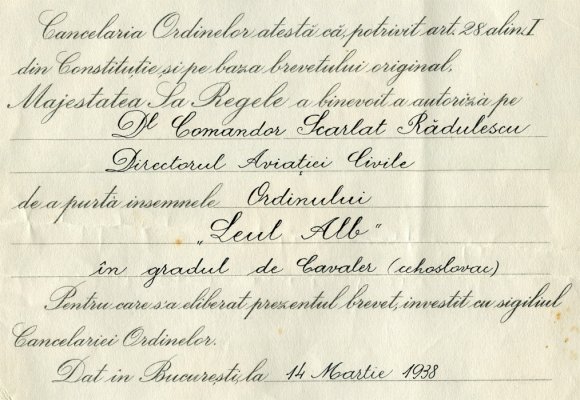 Cancelaria Ordinelor atestă că, potrivit art. 28 alin. I
din Constituție, și pe baza brevetului original,
Majestatea Sa Regele a binevoit a autoriza pe
Dl Comandor Scarlat Rădulescu
Directorul Aviației Civile
de a purtà insemnele Ordinului
„Leul Alb"
în gradul de Cavaler (cehoslovac)
Pentru care s'a eliberat prezentul brevet, investit cu sigiliul
Cancelariei Ordinelor.
Dat in București, la 14 Martie 1938